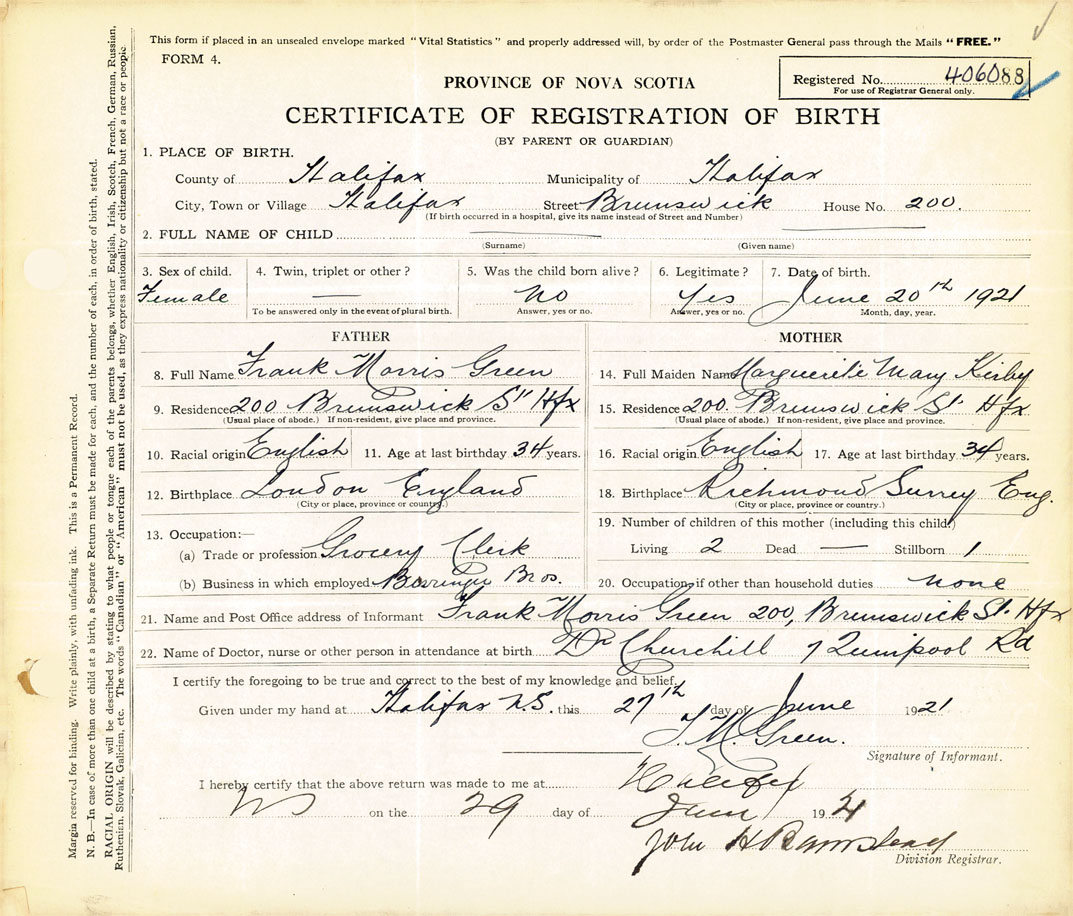 This form if placed in an unsealed envelope marked "Vital Statistics" and properly addressed will, by order of the Postmaster General pass through the Mails "FREE."
FORM 4.
Registered No. 406088
For use of Registrar General only.
PROVINCE OF NOVA SCOTIA
CERTIFICATE OF REGISTRATION OF BIRTH
(BY PARENT OR GUARDIAN)
1. PLACE OF BIRTH.
County of Halifax Municipality of Halifax
City, Town or Village Halifax Street Brunswick House No. 200.
(If birth occurred in a hospital, give its name instead of Street and Number)
2. FULL NAME OF CHILD
(Surname) (Given name)
3. Sex of child. 4. Twin, triplet or other? 5. Was the child born alive? 6. Legitimate? 7. Date of birth.
Female — No Yes June 20th 1921
To be answered only in the event of plural birth. Answer, yes or no. Answer, yes or no. Month, day, year.
FATHER MOTHER
8. Full Name Frank Morris Green 14. Full Maiden Name Marguerite Mary Kirby
9. Residence 200 Brunswick St Hfx 15. Residence 200. Brunswick St. Hfx
(Usual place of abode.) If non-resident, give place and province. (Usual place of abode.) If non-resident, give place and province.
10. Racial origin English 11. Age at last birthday 34 years. 16. Racial origin English 17. Age at last birthday 34 years.
12. Birthplace London England 18. Birthplace Richmond Surrey Eng.
(City or place, province or country.) (City or place, province or country.)
13. Occupation:— 19. Number of children of this mother (including this child.)
(a) Trade or profession Grocery Clerk Living 2 Dead — Stillborn 1
(b) Business in which employed Bros. 20. Occupation if other than household duties none
21. Name and Post Office address of Informant Frank Morris Green 200, Brunswick St. Hfx
22. Name of Doctor, nurse or other person in attendance at birth Dr Churchill 7 Quinpool Rd
I certify the foregoing to be true and correct to the best of my knowledge and belief.
Given under my hand at Halifax N.S. this 27th day of June 1921
F. M. Green.
Signature of Informant.
I hereby certify that the above return was made to me at Halifax
NS on the 29 day of June 1921
John H Barnstead
Division Registrar.
Margin reserved for binding. Write plainly, with unfading ink. This is a Permanent Record.
N. B.—In case of more than one child at a birth, a Separate Return must be made for each, and the number of each, in order of birth, stated.
RACIAL ORIGIN will be described by stating to what people or tongue each of the parents belongs, whether English, Irish, Scotch, French, German, Russian,
Ruthenian, Slovak, Galician, etc. The words "Canadian" or "American" must not be used, as they express nationality or citizenship but not a race or people.